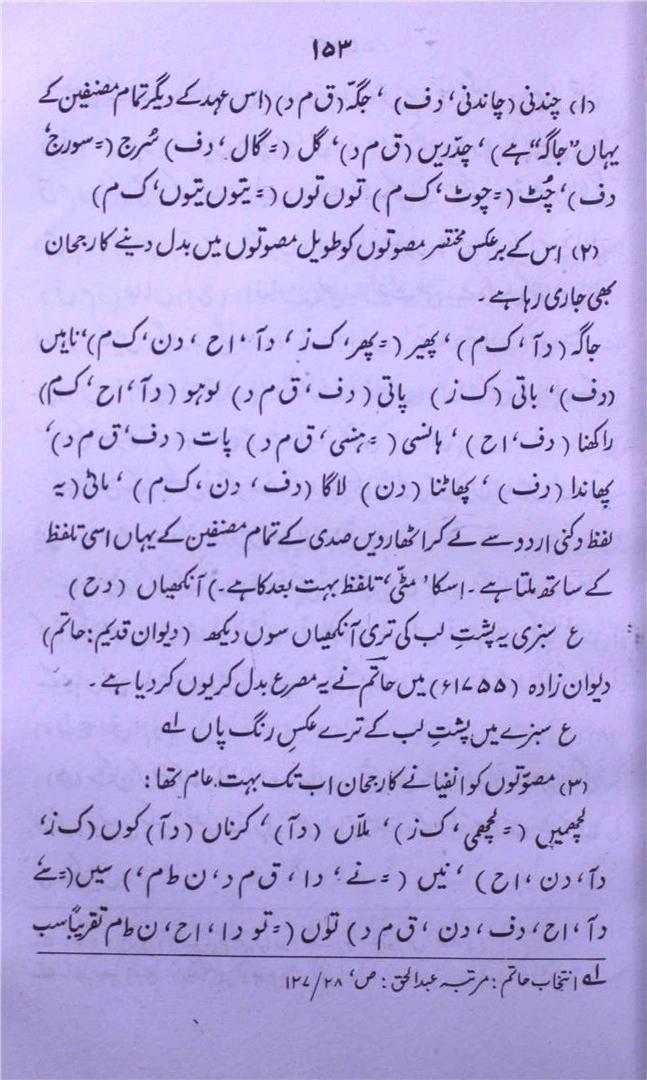 ۱۵۳
(۱) چندنی (چاندنی، دف) ، جگہ (ق م د) (اس عہد کے دیگر تمام مصنفین کے
یہاں "جاگہ" ہے) ، چدّریں (ق م د)، گل (= گال، دف) سُرج (= سورج،
دف)، چُٹ (= چوٹ، ک م) توں توں (= یتوں یتوں، ک م)
(۲) اس کے برعکس مختصر مصوتوں کو طویل مصوتوں میں بدل دینے کا رجحان
بھی جاری رہا ہے۔
جاگہ (دآ، ک م) ، پھیر (= پھر، ک ز، دآ، اح، دن، ک م)، ناہیں
(دف)، باتی (ک ز) پاتی (دف، ق م د) لوہو (دآ، اح، ک م)
راکھنا (دف، اح) ، ہانسی (= ہنسی، ق م د) پات (دف، ق م د)،
پھاندا (دف) ، پھاٹنا (دن) لاگا (دف، دن، ک م) ، ماٹی (یہ
لفظ دکنی اردو سے لے کر اٹھارویں صدی کے تمام مصنفین کے یہاں اسی تلفظ
کے ساتھ ملتا ہے۔ اسکا 'مٹّی' تلفظ بہت بعد کا ہے۔) آنکھیاں (دح)
ع سبزی یہ پشتِ لب کی تری آنکھیاں سوں دیکھ (دیوان قدیم: حاتم)
دیوان زادہ (۱۷۵۵ء) میں حاتم نے یہ مصرع بدل کر یوں کر دیا ہے۔
ع سبزے میں پشتِ لب کے ترے عکسِ رنگ پاں ؎۱
(۳) مصوّتوں کو انفیانے کا رجحان اب تک بہت عام تھا:
لچھمیں (= لچھی، ک ز) ، ملاّں (دآ)، کرناں (دآ) کوں (ک ز،
دآ، دن، اح) ، نیں (= نے، دا، ق م د، ن ط م،) سیں (= سے
دآ، اح، دف، دن، ق م د) توں (= تو دا، اح، ن ط م تقریباً سب
؎۱ انتخاب حاتم: مرتبہ عبدالحق: ص، ۱۲۷/۲۸